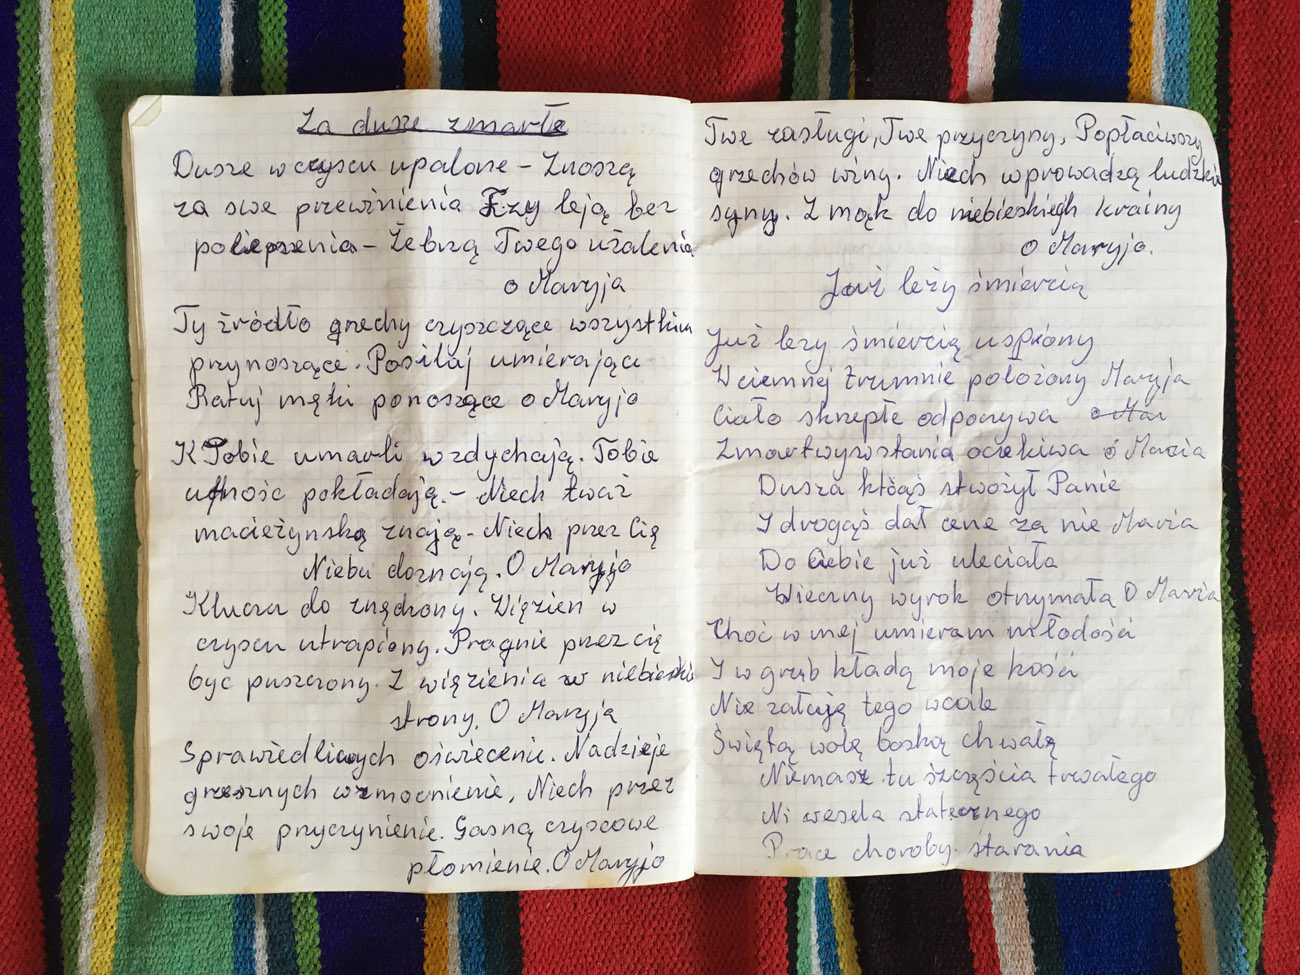 Za dusze zmarłe
Dusze w czyscu upalone – Znoszą
za swe przewinienia Łzy leją bez
polepszenia – Żebrzą Twego użalenia
o Maryja
Ty źródło grzechy czyszczące wszystkim
przynoszące. Posilaj umierające
Ratuj męki ponoszące o Maryjo
K Tobie umarli wzdychają. Tobie
ufność pokładają. – Niech tważ
macieżynską znają – Niech przez Cię
Niebu doznają. O Maryjo
Klucza do znędzony. Więzien w
czyscu utrapiony. Pragnie przez cię
być puszczony. Z więzienia w niebieskie
strony. O Maryja
Sprawiedliwych oświecenie. Nadzieje
grzesznych wzmocnienie, Niech przez
swoje przyczynienie. Gasną czyscowe
płomienie. O Maryjo
Twe zasługi, Twe przyczyny, Popłaciwszy
grzechów winy. Niech wprowadzą ludzkie
syny. Z mąk do niebieskiegh krainy
o Maryjo.
Już leży śmiercią
Już leży śmiercią uspiony
W ciemnej trumnie położony Maryja
Ciało skrzepłe odpoczywa o Mar
Zmartwyrostania oczekiwa ó Maria
Dusza którąś stwożył Panie
I drogąś dał cene za nie Maria
Do Ciebie już uleciała
Wieczny wyrok otrzymała O Maria
Choć w mej umieram młodości
I w grub kładą moje kości
Nie załują tego wcale
Świętą wolę boską chwalę
Niemasz tu szczęścia trwałego
Ni wesela statecznego
Prace choroby starania